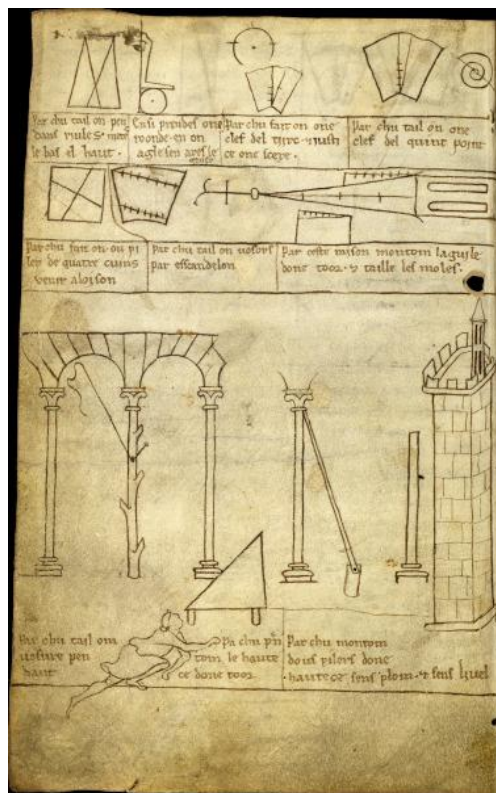 Par chu tail on pen
dans riules
le bas el haut.
Ensi prendes one
roonde en on
agle sen ares le
Par chu fait on one
clef del tierc &
ce one scere.
Par chu tail on one
clef del quint point
Par chu fait on on pi
ler de quatre cuins
venir aloison
Par chu tail on vosors
par esscandelon
Par ceste raison montom laguile
done toor. & taille les moles.
Par chu tail om
vosure pen
dant
Pa chu
tom le haute
ce done toor
Par chu montom
dous pilers done
hautece sens plom. & sens livel